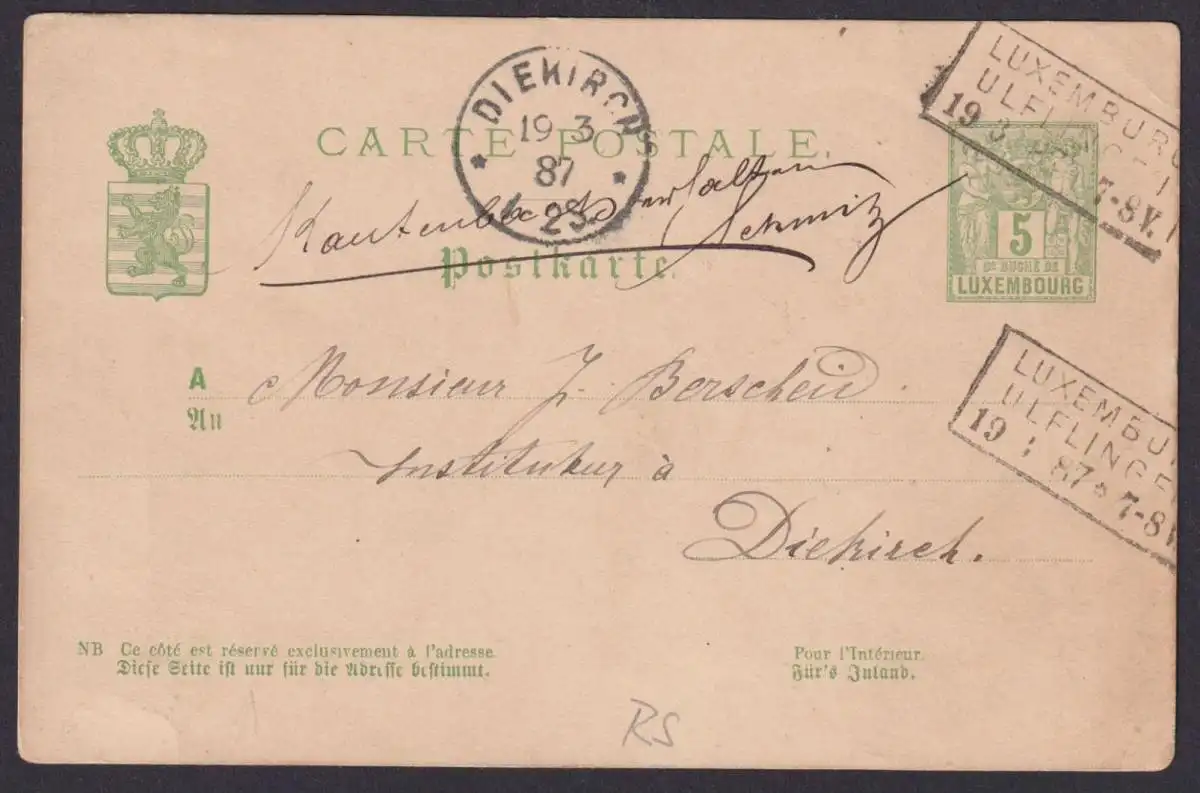 LUXEMBURG
ULFLINGE
19 3 87 7-8V.
DIEKIRCH
19 3
87
CARTE POSTALE.
Kautenbach erhalten
Schmitz
Postkarte.
5
GD DUCHÉ DE
LUXEMBOURG
LUXEMBU
ULFLINGE
19 87 7-8V.
A Monsieur J. Berscheid
An
Instituteur à
Diekirch.
NB Ce côté est réservé exclusivement à l'adresse.
Diese Seite ist nur für die Adresse bestimmt.
Pour l'Intérieur.
Für's Inland.
RS